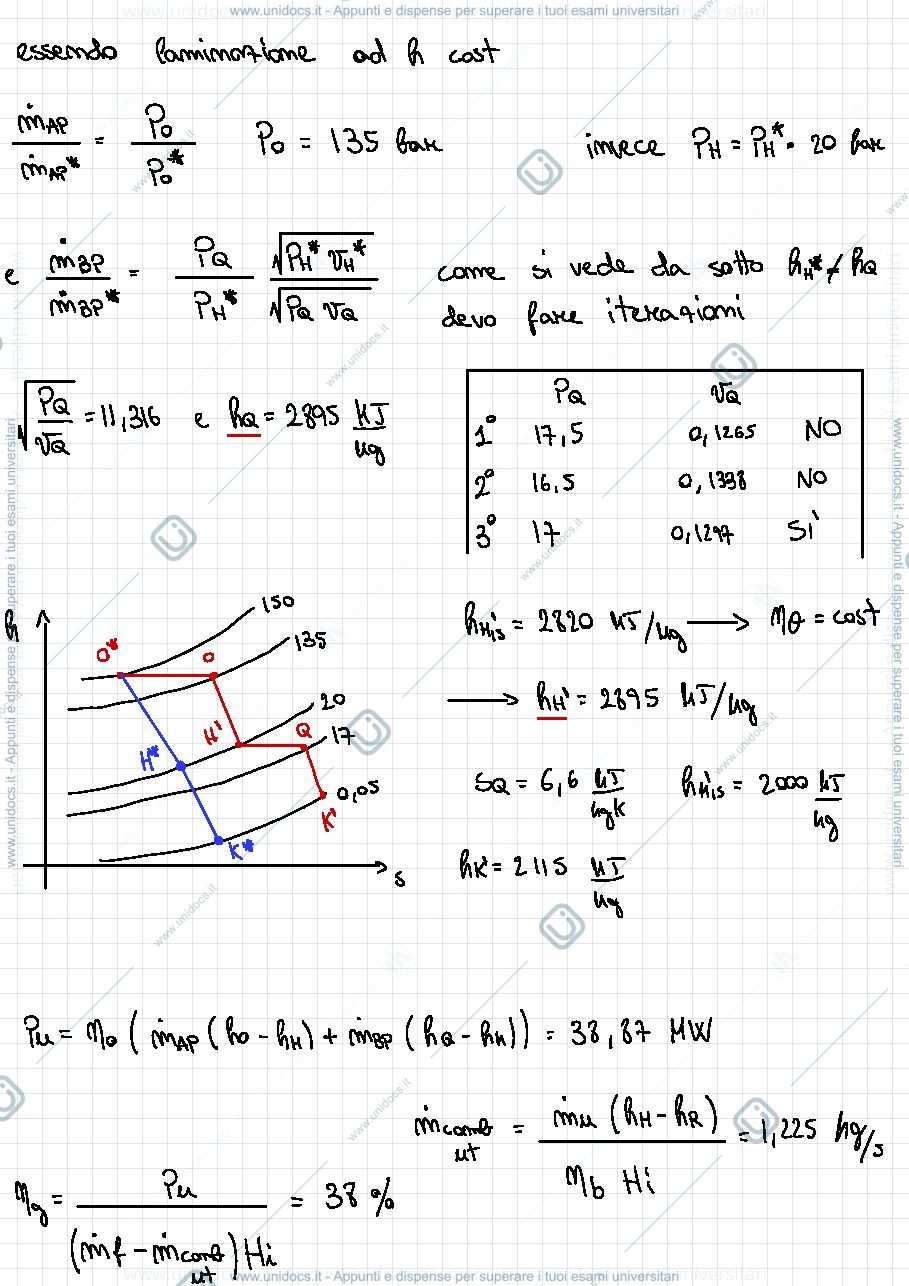 www.unidocs.it - Appunti e dispense per superare i tuoi esami universitari
essendo laminazione ad h cost
ṁAP / ṁAP* = P0 / P0*   P0 = 135 bar   invece PH = PH* = 20 bar
e ṁBP / ṁBP* = PQ / PH* √(PH* vH*) / √(PQ vQ)   come si vede da sotto hH* ≠ hQ
devo fare iterazioni
√(PQ / vQ) = 11,316 e hQ = 2895 kJ/kg
PQ vQ
1° 17,5 0,1265 NO
2° 16,5 0,1338 NO
3° 17 0,1297 SI'
h
150
135
20
17
0,05
O*
O
H'
Q
H*
K'
K*
s
hH'is = 2820 kJ/kg → ηθ = cost
→ hH' = 2895 kJ/kg
sQ = 6,6 kJ/kgK   hK'is = 2000 kJ/kg
hK' = 2115 kJ/kg
Pu = η0 ( ṁAP (h0 - hH) + ṁBP (hQ - hK)) = 38,87 MW
ṁcomb ut = ṁu (hH - hR) / ηb Hi = 1,225 kg/s
ηg = Pu / (ṁf - ṁcomb ut) Hi = 38 %
www.unidocs.it - Appunti e dispense per superare i tuoi esami universitari